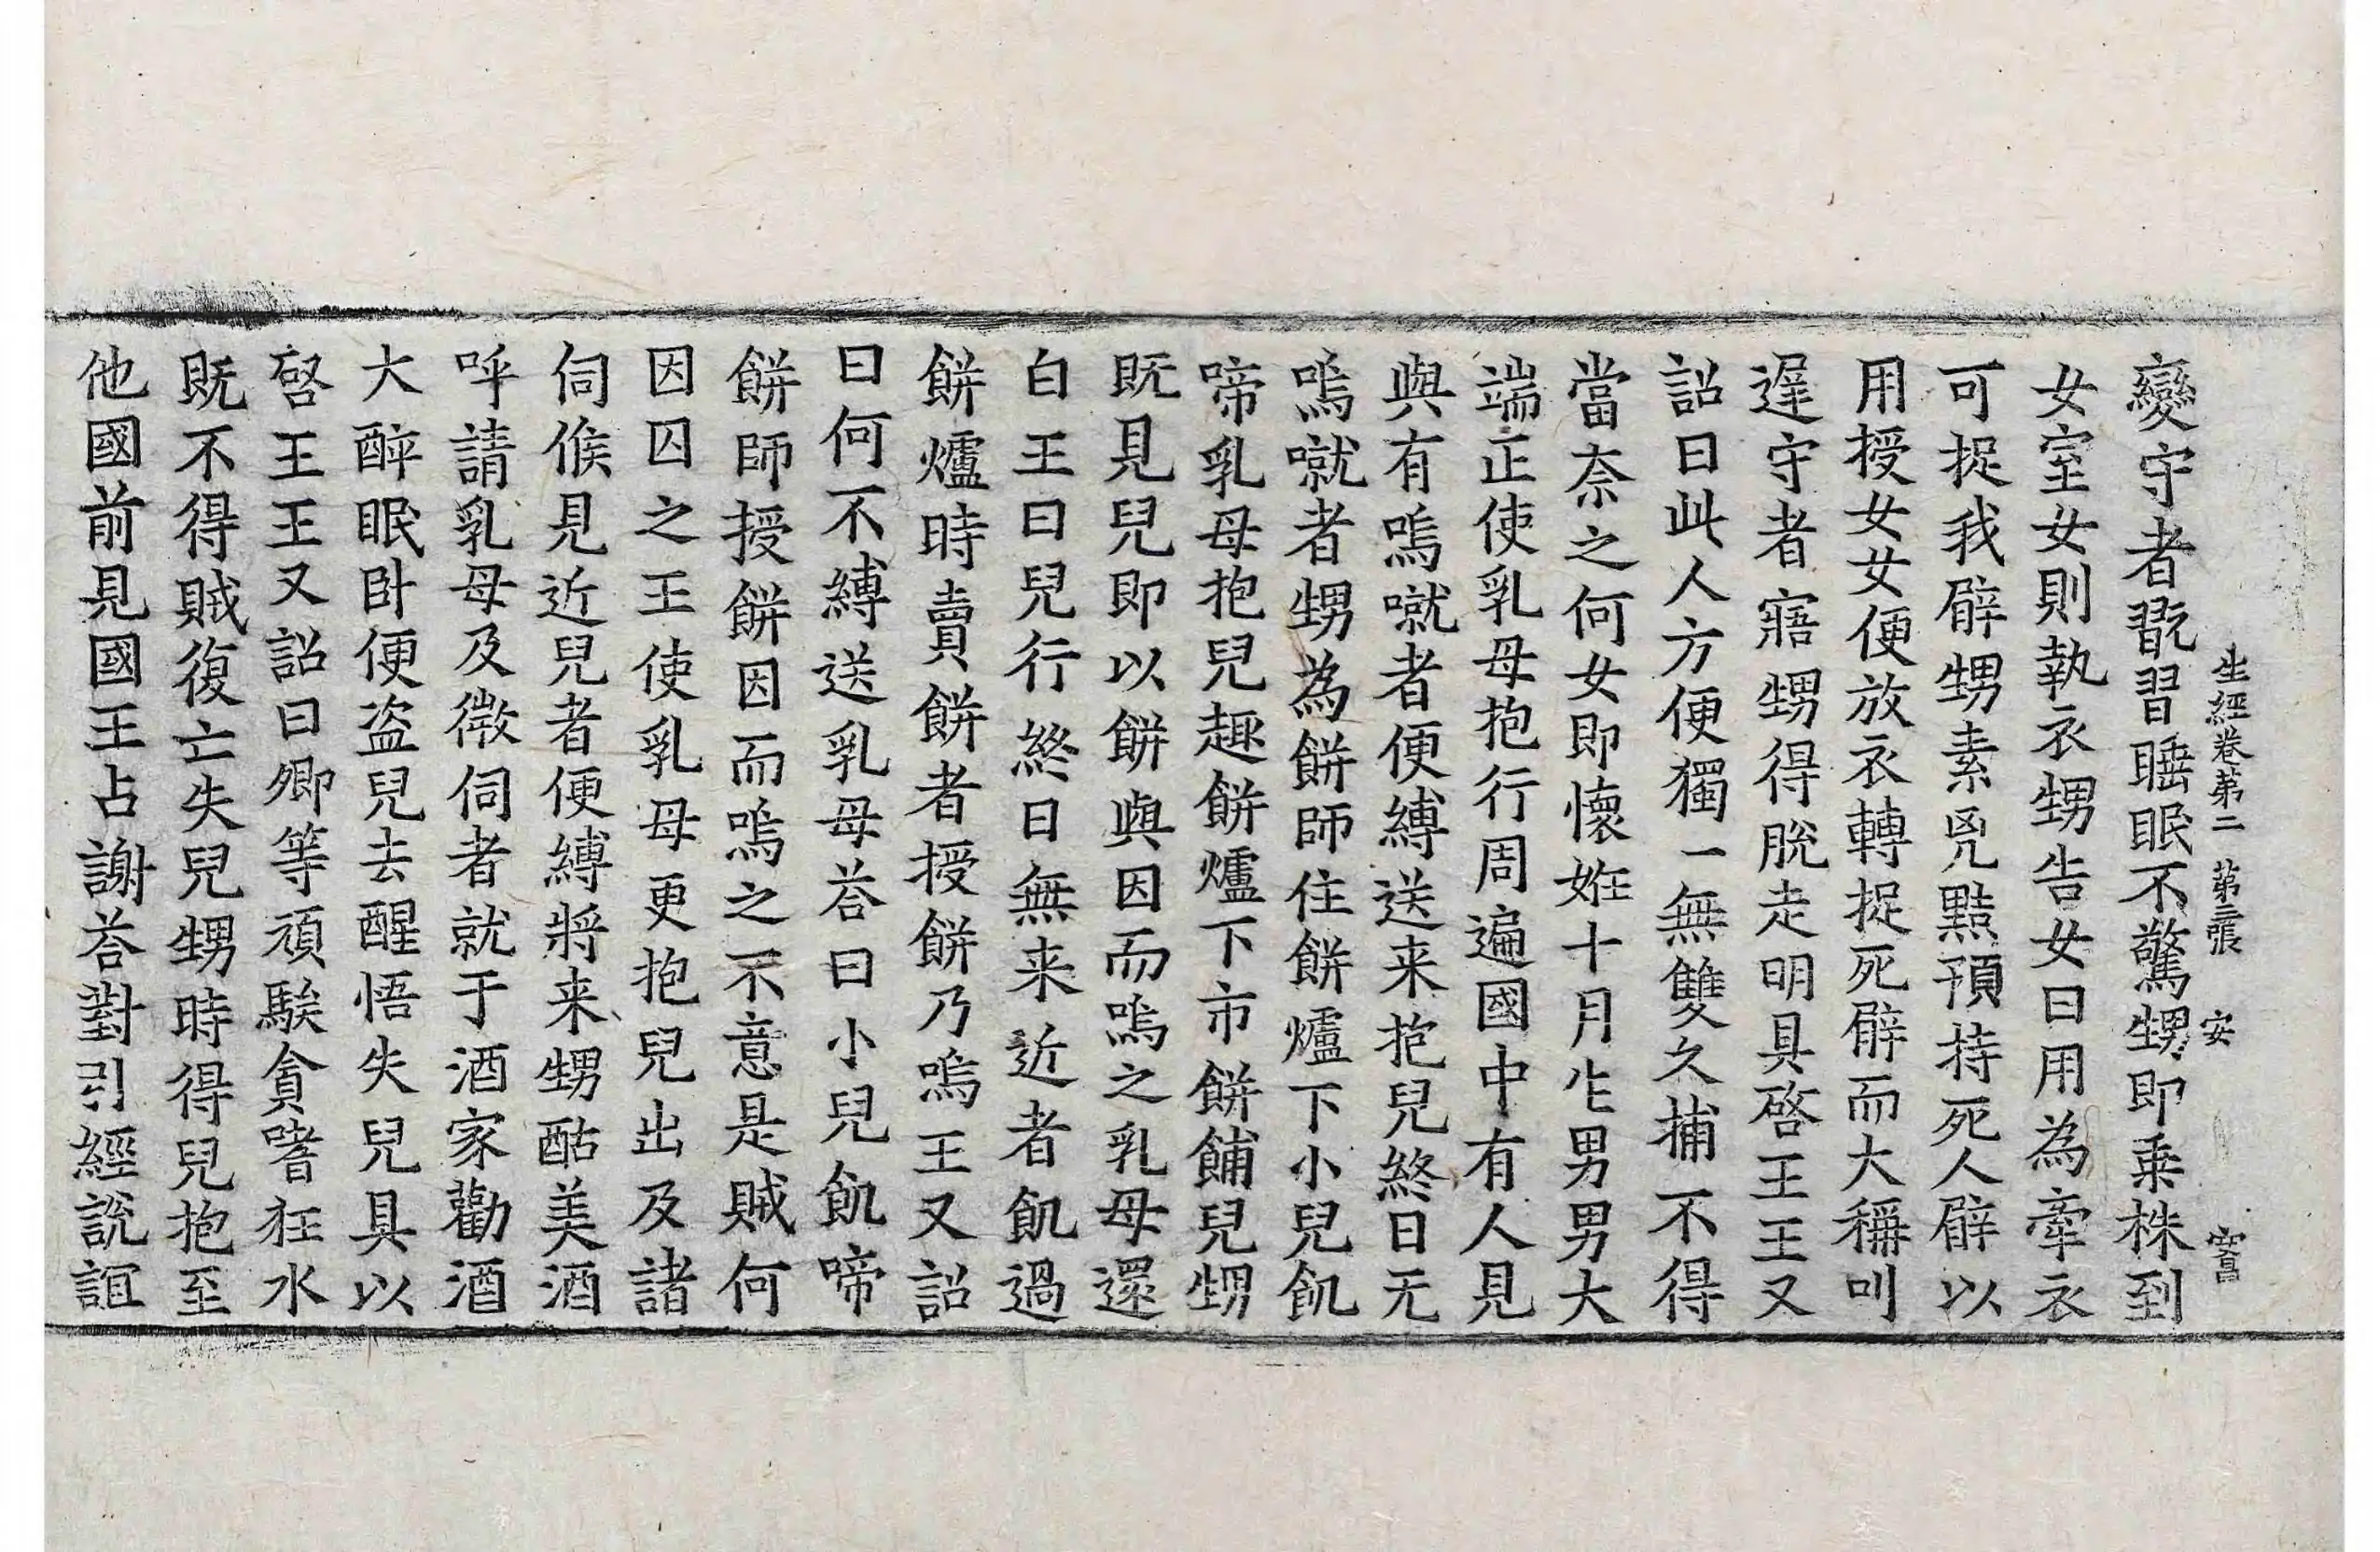 生經卷第二 第三張 安 富
變守者翫習睡眠不驚甥即乗株到
女室女則執衣甥告女曰用為牽衣
可捉我臂甥素兇黠預持死人臂以
用授女女便放衣轉捉死臂而大稱叫
遅守者寤甥得脫走明具啓王王又
詔曰此人方便獨一無雙久捕不得
當奈之何女即懷姙十月生男男大
端正使乳母抱行周遍國中有人見
與有嗚噈者便縛送来抱兒終日无
嗚噈者甥為餅師住餅爐下小兒飢
啼乳母抱兒趣餅爐下市餅餔兒甥
既見兒即以餅與因而嗚之乳母還
白王曰兒行終日無来近者飢過
餅爐時賣餅者授餅乃嗚王又詔
曰何不縛送乳母荅曰小兒飢啼
餅師授餅因而嗚之不意是賊何
因囚之王使乳母更抱兒出及諸
伺候見近兒者便縛將来甥酤美酒
呼請乳母及微伺者就于酒家勸酒
大醉眠卧便盗兒去醒悟失兒具以
啓王王又詔曰卿等頑騃貪嗜狂水
既不得賊復亡失兒甥時得兒抱至
他國前見國王占謝荅對引經說誼